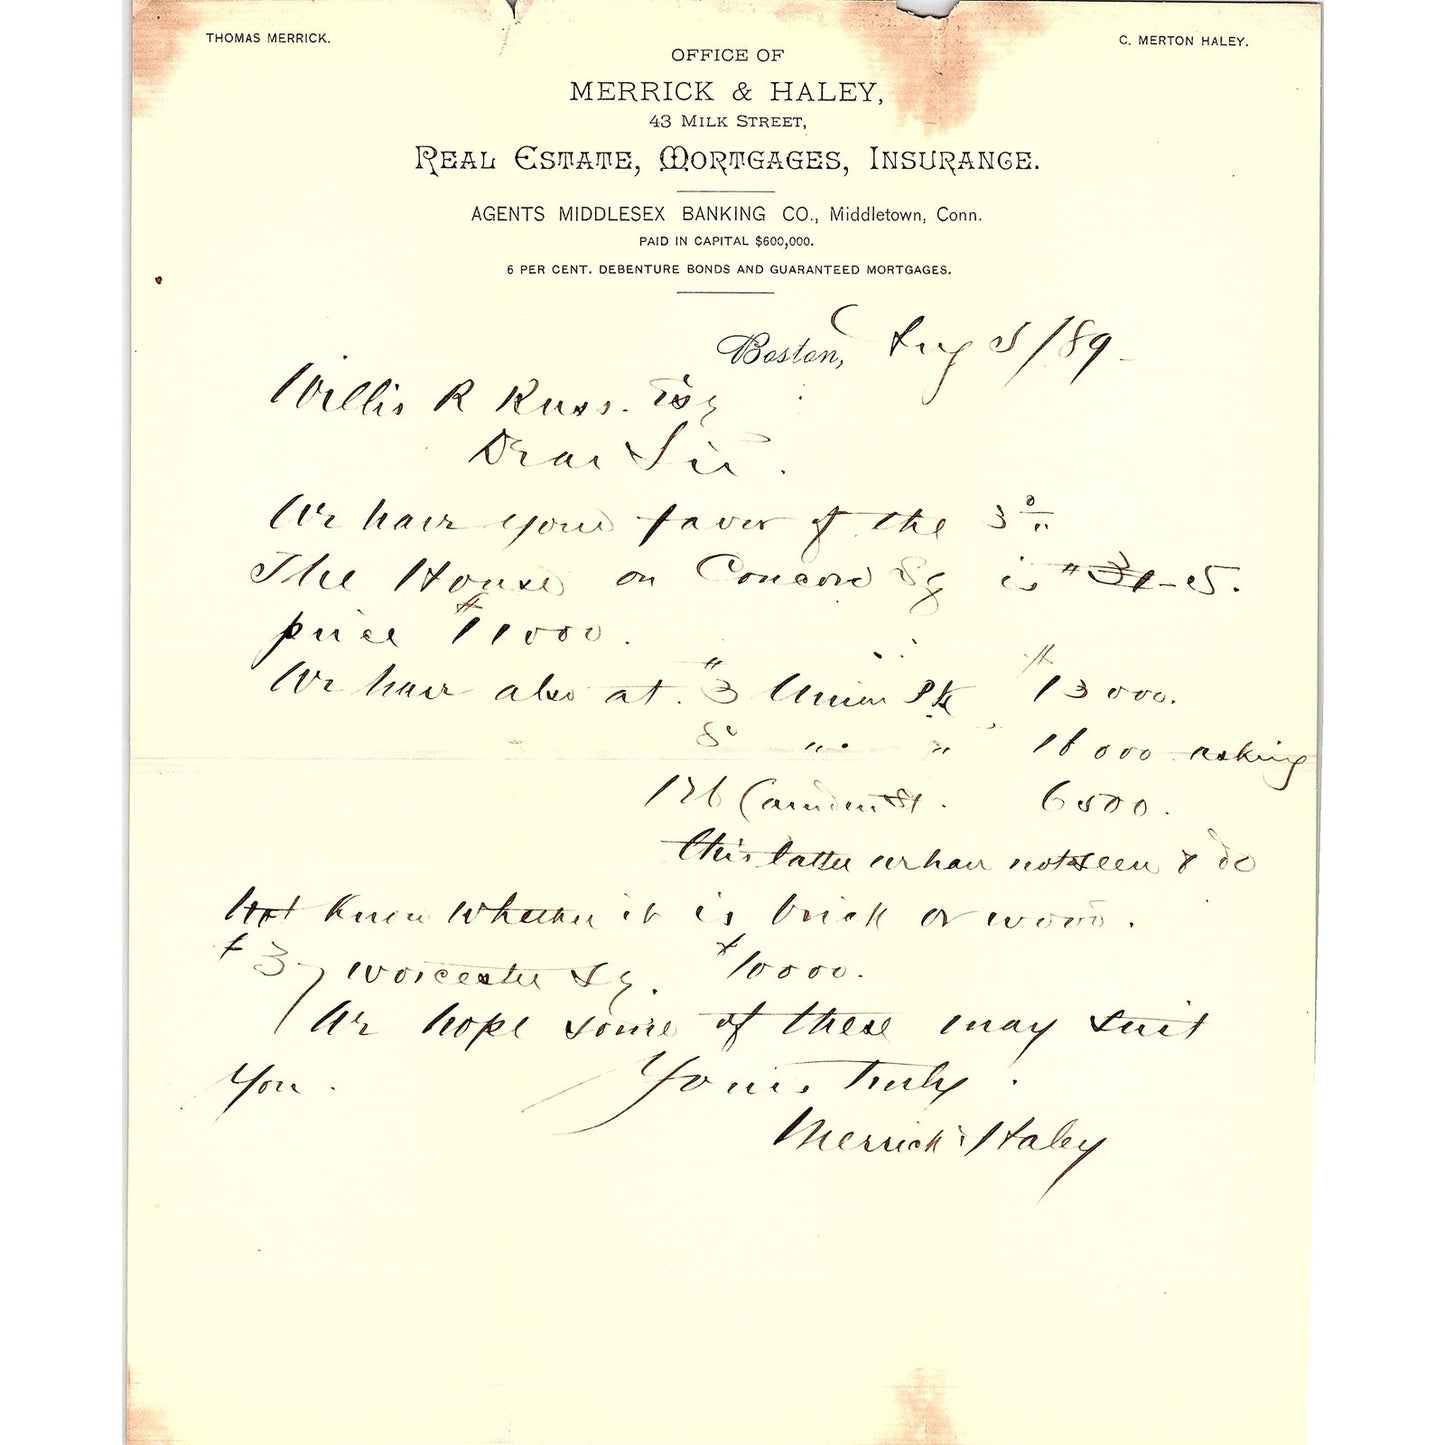 THOMAS MERRICK.
C. MERTON HALEY.
OFFICE OF
MERRICK & HALEY,
43 MILK STREET,
REAL ESTATE, MORTGAGES, INSURANCE.
AGENTS MIDDLESEX BANKING CO., Middletown, Conn.
PAID IN CAPITAL $600,000.
6 PER CENT. DEBENTURE BONDS AND GUARANTEED MORTGAGES.
Boston, Aug 5/89
Willis R Russ. Esq
Dear Sir.
We have your favor of the 3
The House on Concord Sq is
price $11000.
We have also at. #3 Union Pk $13000.
8 " " 000 asking
126 Camden St. 6500.
this latter we have not seen & do
not know whether it is brick or wood.
#37 Worcester Sq. $10000.
We hope some of these may suit
you.
Yours truly.
Merrick & Haley